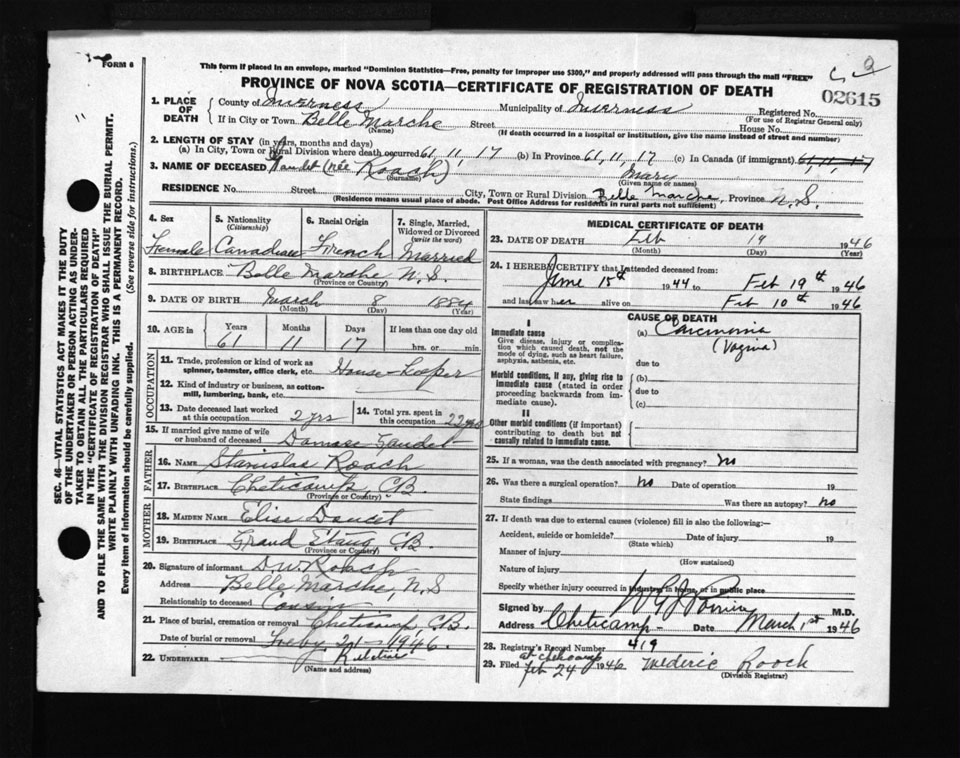 FORM 6
This form if placed in an envelope, marked "Dominion Statistics—Free, penalty for improper use $300," and properly addressed will pass through the mail "FREE"
PROVINCE OF NOVA SCOTIA—CERTIFICATE OF REGISTRATION OF DEATH
02615
1. PLACE OF DEATH
County of Inverness Municipality of Inverness Registered No.
(For use of Registrar General only)
If in City or Town Belle Marche Street House No.
(Name) (If death occurred in a hospital or institution, give the name instead of street and number)
2. LENGTH OF STAY (in years, months and days)
(a) In City, Town or Rural Division where death occurred 61, 11, 17 (b) In Province 61, 11, 17 (c) In Canada (if immigrant) 61, 11, 17
3. NAME OF DECEASED (née Roach) Mary
(Surname) (Given name or names)
RESIDENCE No. Street City, Town or Rural Division Belle Marche, Province N.S.
(Residence means usual place of abode. Post Office Address for residents in rural parts not sufficient)
4. Sex
Female
5. Nationality
(Citizenship)
Canadian
6. Racial Origin
French
7. Single, Married, Widowed or Divorced
(write the word)
Married
8. BIRTHPLACE Belle Marche N.S.
(Province or Country)
9. DATE OF BIRTH March 8 1884
(Month) (Day) (Year)
10. AGE in Years Months Days If less than one day old
61 11 17 hrs. or min.
OCCUPATION
11. Trade, profession or kind of work as spinner, teamster, office clerk, etc. House-Keeper
12. Kind of industry or business, as cotton-mill, lumbering, bank, etc.
13. Date deceased last worked at this occupation 2 yrs
14. Total yrs. spent in this occupation 22 yrs
15. If married give name of wife or husband of deceased Damase Gaudet
FATHER
16. NAME Stanislas Roach
17. BIRTHPLACE Cheticamp, C.B.
(Province or Country)
MOTHER
18. MAIDEN NAME Elise
19. BIRTHPLACE Grand Etang C.B.
(Province or Country)
20. Signature of informant D.W. Roach
Address Belle Marche, N.S
Relationship to deceased Cousin
21. Place of burial, cremation or removal Cheticamp, C.B.
Date of burial or removal Feby 21 - 1946.
22. UNDERTAKER
(Name and address)
MEDICAL CERTIFICATE OF DEATH
23. DATE OF DEATH Feb 19 1946
(Month) (Day) (Year)
24. I HEREBY CERTIFY that I attended deceased from:
June 15th 1944 to Feb 19th 1946
and last saw her alive on Feb 10th 1946
CAUSE OF DEATH
I
Immediate cause
Give disease, injury or complication which caused death, not the mode of dying, such as heart failure, asphyxia, asthenia, etc.
(a) Carcinoma
(Vagina)
due to
Morbid conditions, if any, giving rise to immediate cause (stated in order proceeding backwards from immediate cause).
(b)
due to
(c)
II
Other morbid conditions (if important) contributing to death but not causally related to immediate cause.
25. If a woman, was the death associated with pregnancy? No
26. Was there a surgical operation? No Date of operation 19
State findings Was there an autopsy? No
27. If death was due to external causes (violence) fill in also the following:—
Accident, suicide or homicide? Date of injury 19
(State which)
Manner of injury
(How sustained)
Nature of injury
Specify whether injury occurred in industry, in home, or in public place
Signed by M.D.
Address Cheticamp - Date March 1st 1946
28. Registrar's Record Number 419
29. Filed Feb 24 1946 Mederic Roach
(Division Registrar)
SEC. 46—VITAL STATISTICS ACT MAKES IT THE DUTY
OF THE UNDERTAKER OR PERSON ACTING AS UNDER-
TAKER TO OBTAIN ALL THE PARTICULARS REQUIRED
IN THE "CERTIFICATE OF REGISTRATION OF DEATH"
AND TO FILE THE SAME WITH THE DIVISION REGISTRAR WHO SHALL ISSUE THE BURIAL PERMIT.
WRITE PLAINLY WITH UNFADING INK. THIS IS A PERMANENT RECORD.
Every item of information should be carefully supplied. (See reverse side for instructions.)